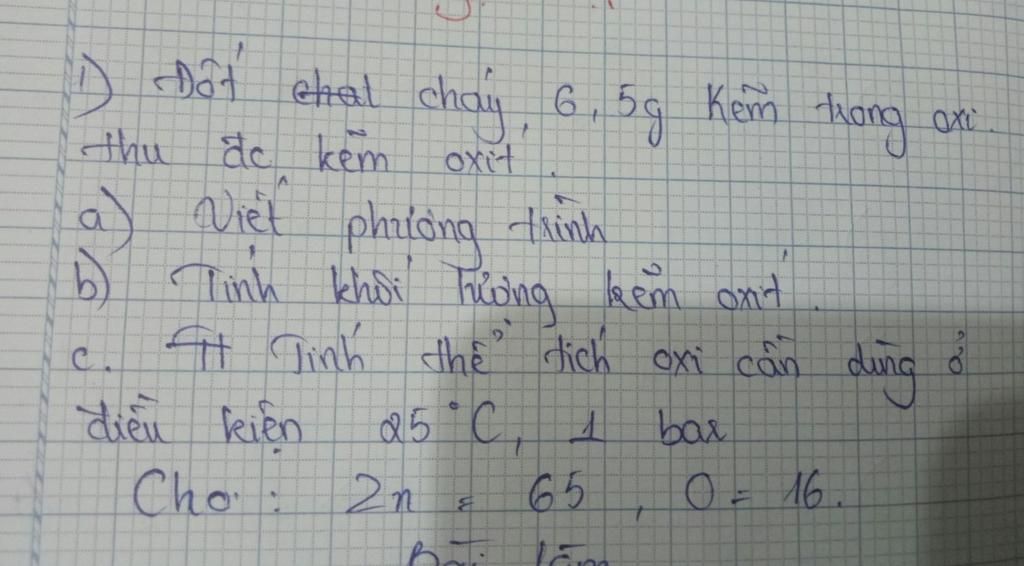 1) Đốt chat cháy, 6,5g Kẽm trong oxi.
thu đc kẽm oxit.
a) Viết phương trình
b) Tính khối lượng kẽm oxit.
c. Tính thể tích oxi cần dùng ở
điều kiện 25°C, 1 bar
Cho: Zn = 65, O = 16.
Bài làm